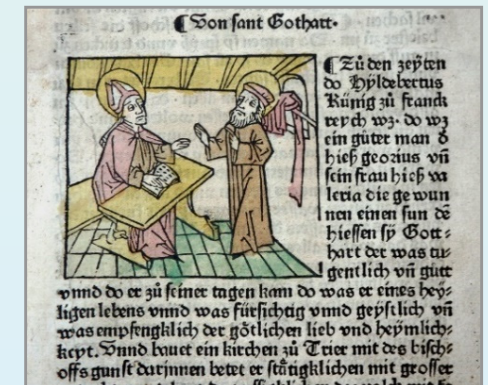 ¶ Von sant Gothart.
¶ Zů den zeyten
do Hyldebertus
Künig zů franck
reych wz. do wz
ein gůter man d
hieß geozius vñ
sein frau hieß va
leria die ge wun
nen einen sun dē
hiessen sy Gott⸗
hart der was tu⸗
gentlich vñ gůtt
vnnd do er zů seiner tagen kam do was er eines hey⸗
ligen lebens vnnd was fürsichtig vnnd geystlich vñ
was empfengklich der götlichen lieb vnd heymlich⸗
keyt. Vnnd bauet ein kirchen zů Trier mit des bisch⸗
offs gunst darinnen betet er stätigklichen mit grosser